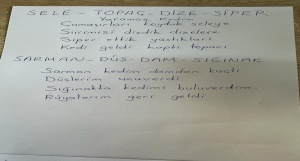 SELE - TOPAÇ - DİZE - SİPER
Yaramaz Kedim
Çamaşırları koyduk seleye
Siirimizi dizdik dizelere
Siper ettik yastıkları
Kedi geldi kaptı topacı
SARMAN - DÜŞ - DAM - SIĞINAK
Sarman kedim damdan kaçtı
Düşlerim uçuverdi
Sığınakta kedimi buluverdim
Rüyalarım geri geldi